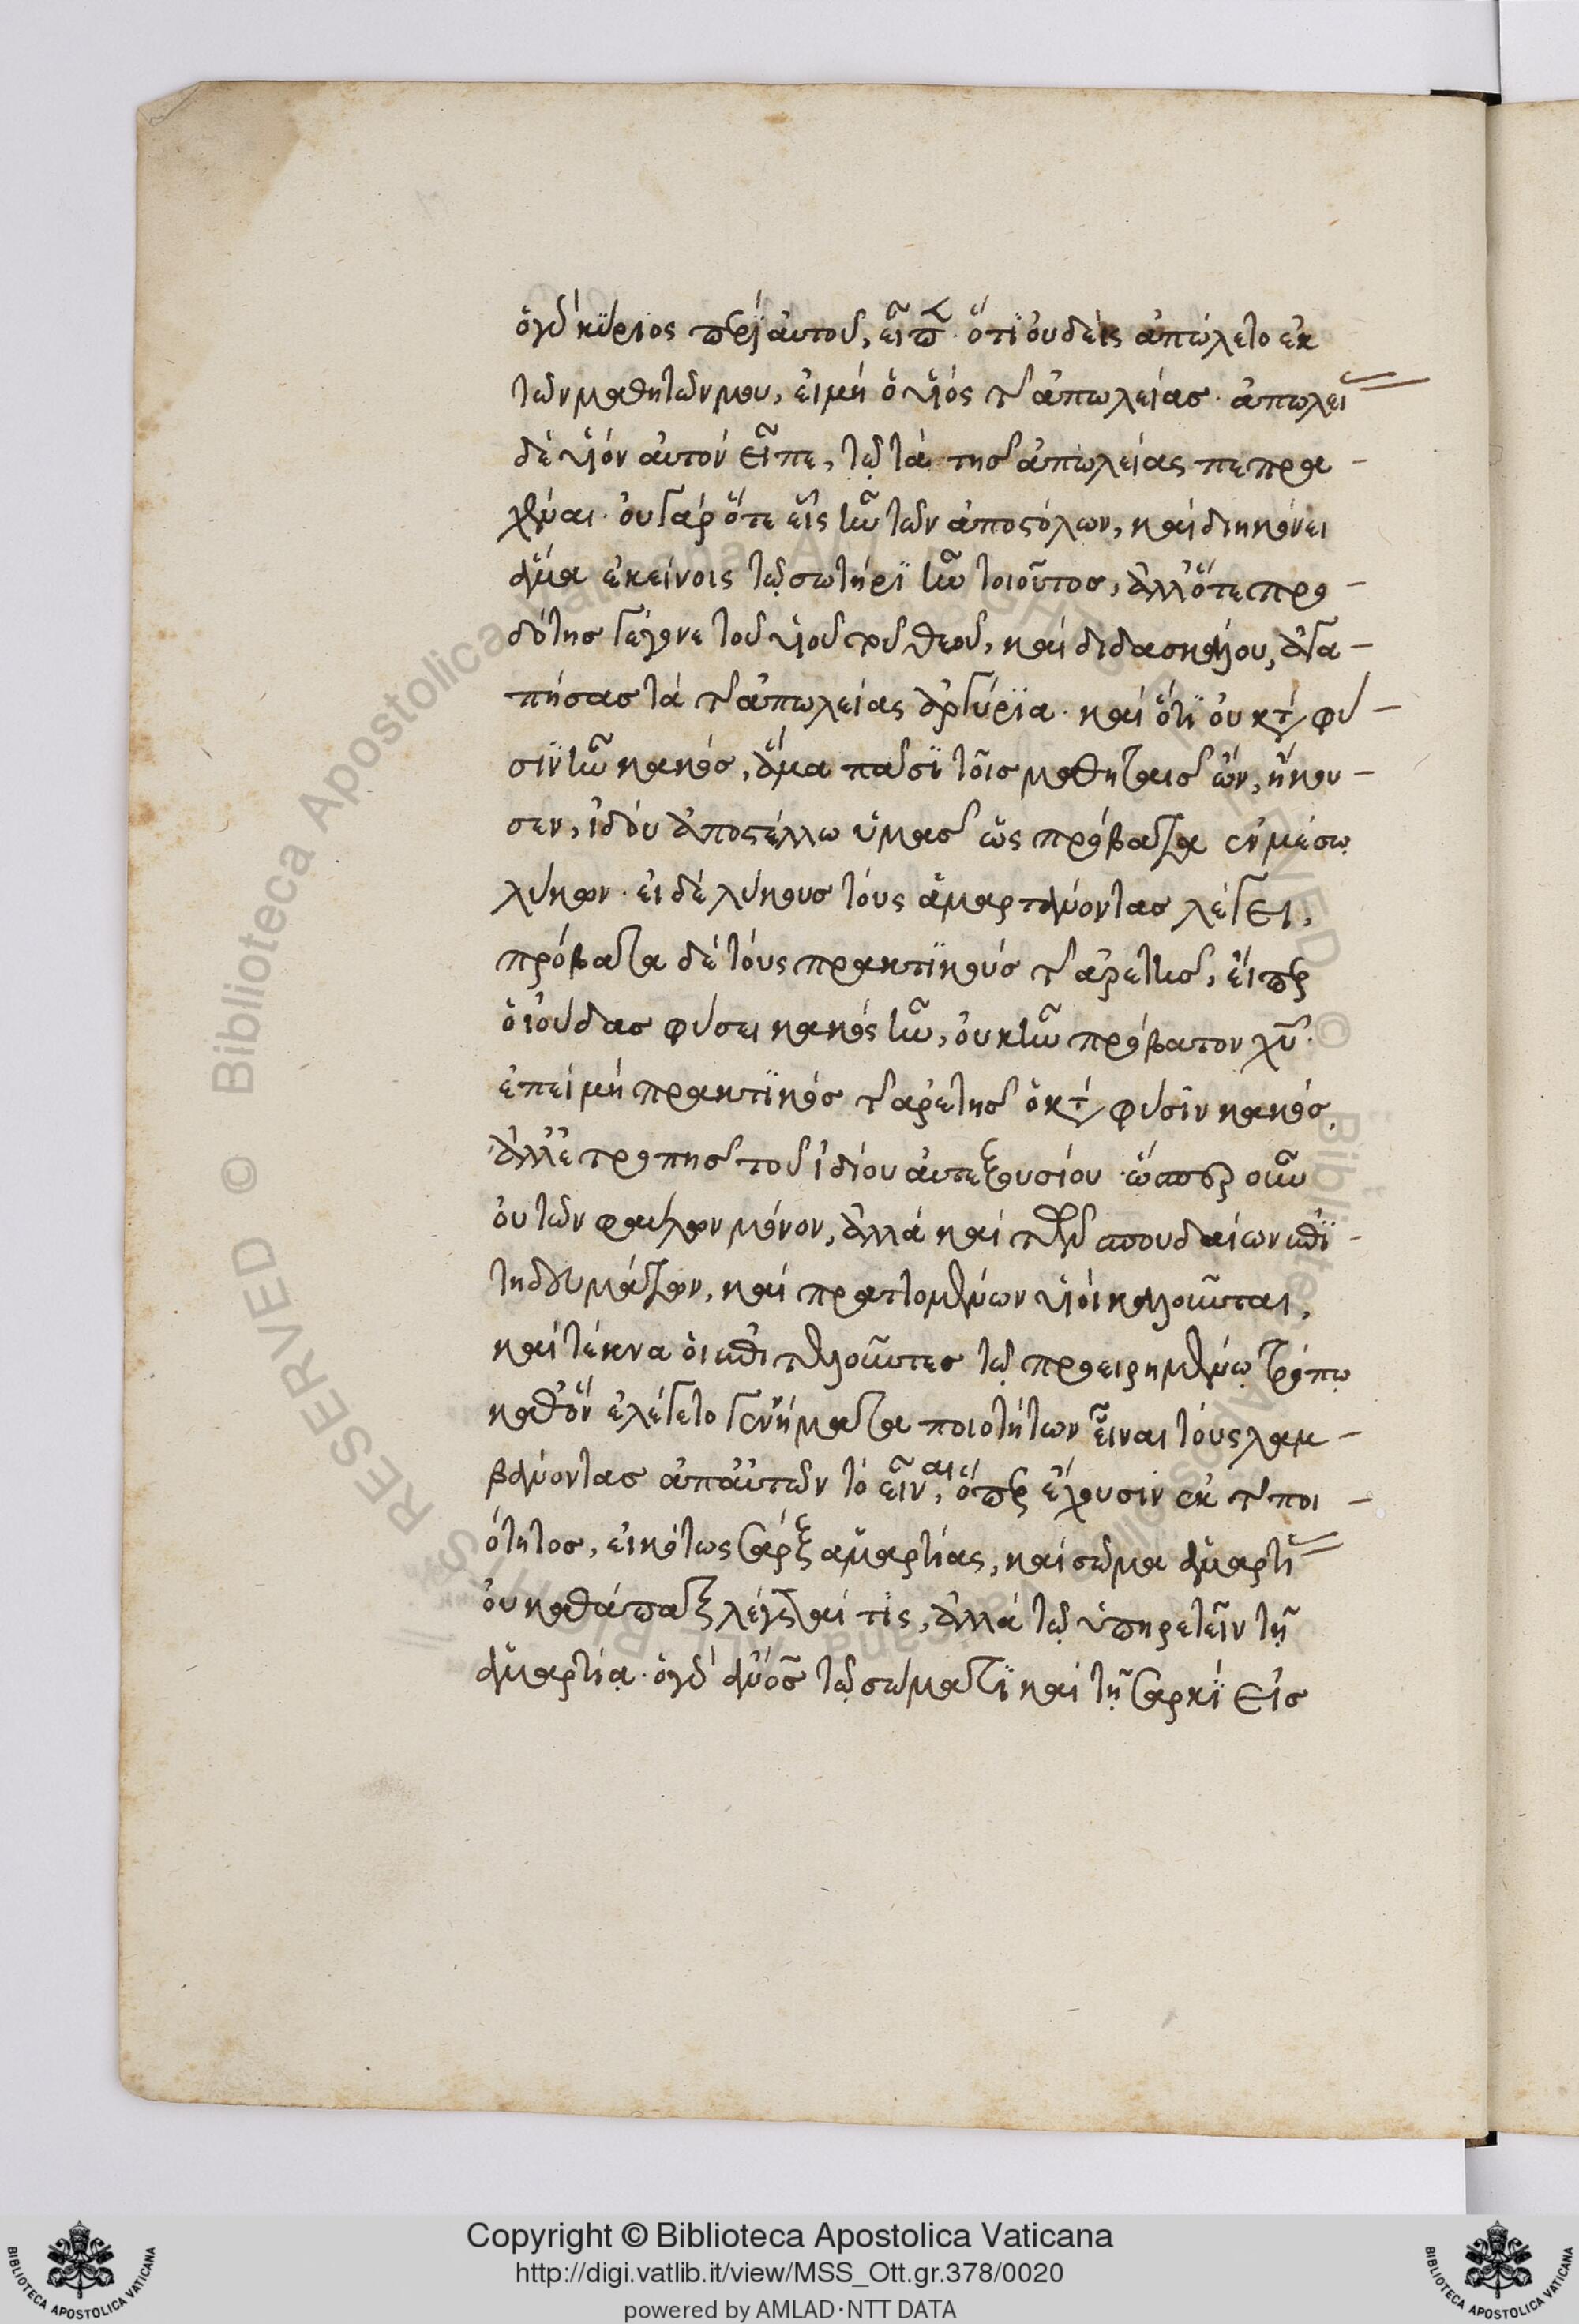 ὁ γοῦν κύριος περὶ αὐτοῦ, εἶπεν· ὅτι οὐδεὶς ἀπώλετο ἐκ
τῶν μαθητῶν μου, εἰ μὴ ὁ υἱὸς τῆς ἀπωλείας· ἀπωλείας
δὲ υἱὸν αὐτὸν εἶπε, τῷ τὰ τῆς ἀπωλείας πεπρα-
χέναι· οὐ γὰρ ὅτε εἷς ἦν τῶν ἀποστόλων, καὶ διηκόνει
ἅμα ἐκείνοις τῷ σωτῆρι ἦν τοιοῦτος, ἀλλ' ὅτε προ-
δότης γέγονε τοῦ υἱοῦ τοῦ θεοῦ, καὶ διδασκάλου, ἀγα-
πήσας τὰ τῆς ἀπωλείας ἀργύρια· καὶ ὅτι οὐ κατὰ φύ-
σιν ἦν κακός, ἅμα πᾶσι τοῖς μαθηταῖς ὢν, ἤκου-
σεν, ἰδοὺ ἀποστέλλω ὑμᾶς ὡς πρόβατα ἐν μέσῳ
λύκων· εἰ δὲ λύκους τοὺς ἁμαρτάνοντας λέγει,
πρόβατα δὲ τοὺς πρακτικοὺς τῆς ἀρετῆς, εἴπερ
ὁ ἰούδας φύσει κακὸς ἦν, οὐκ ἦν πρόβατον χῦ·
ἐπεὶ μὴ πρακτικὸς τῆς ἀρετῆς ὁ κατὰ φύσιν κακός,
ἀλλ' ἐκ τροπῆς τοῦ ἰδίου αὐτεξουσίου· ὥσπερ οὖν
οὐ τῶν φαύλων μόνον, ἀλλὰ καὶ τῶν σπουδαίων ἐπι-
τηδευμάτων, καὶ πραττομένων υἱοὶ καλοῦνται,
καὶ τέκνα οἱ ἐπιτελοῦντες τῷ προειρημένῳ τρόπῳ
καθ' ὃν ἐλέγετο γεννήματα ποιοτήτων εἶναι τοὺς λαμ-
βάνοντας ἀπ' αὐτῶν τὸ εἶναι, ὅπερ ἔχουσιν ἐκ τῆς ποι-
ότητος, εἰκότως σὰρξ ἁμαρτίας, καὶ σῶμα ἁμαρτίας
οὐ καθάπαξ λέγεταί τις, ἀλλὰ τῷ ὑπηρετεῖν τῇ
ἁμαρτίᾳ· ὁ γοῦν ἄνος τῷ σώματι καὶ τῇ σαρκὶ εἰς
Copyright © Biblioteca Apostolica Vaticana
http://digi.vatlib.it/view/MSS_Ott.gr.378/0020
powered by AMLAD·NTT DATA